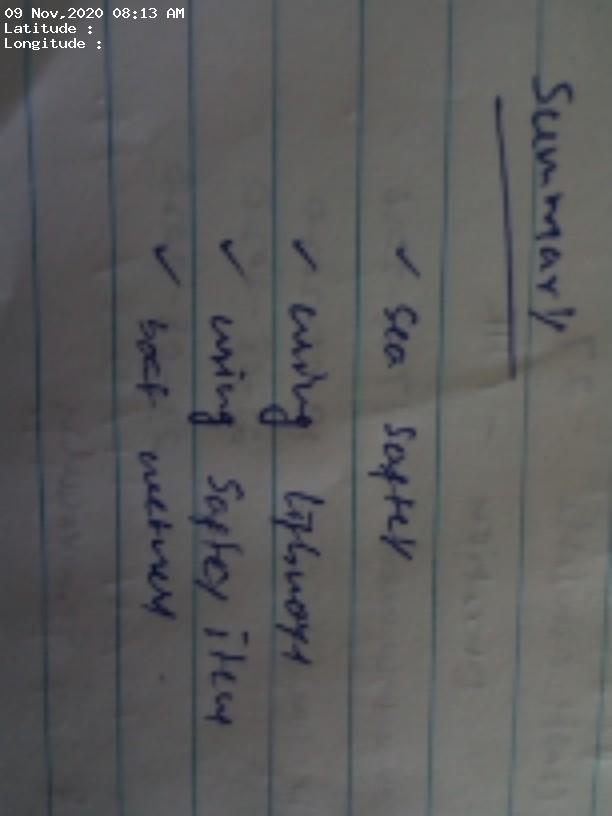 09 Nov,2020 08:13 AM
Latitude :
Longitude :
Summary
✓ sea saftey
✓ using
✓ using Saftey item
✓ boat